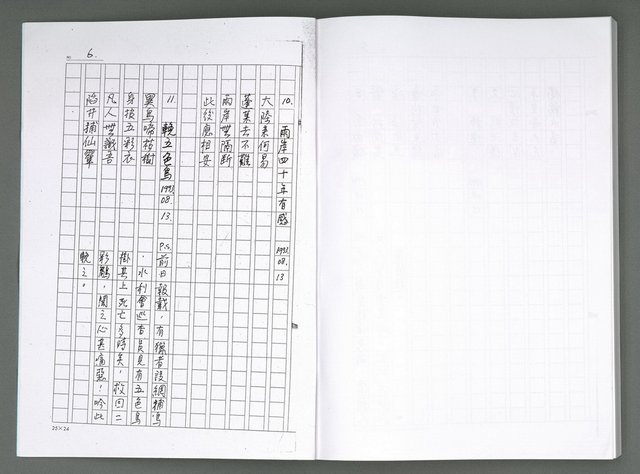 6.
10. 兩岸四十年有感 1991.08.13
大陸來何易
蓬萊去不難
兩岸無隔斷
此後應相安
11. 輓五色鳥 1991.08.13.
異鳥啼枯樹
身披五彩衣
凡人無識吾
陷井捕仙軍
P.S. 前日報載，有獵者設網捕鳥
，水利會巡查員見有五色鳥
掛其上死亡多時矣，救回二
彩鸝，聞之心甚痛惡！吟此
輓之。
25×24